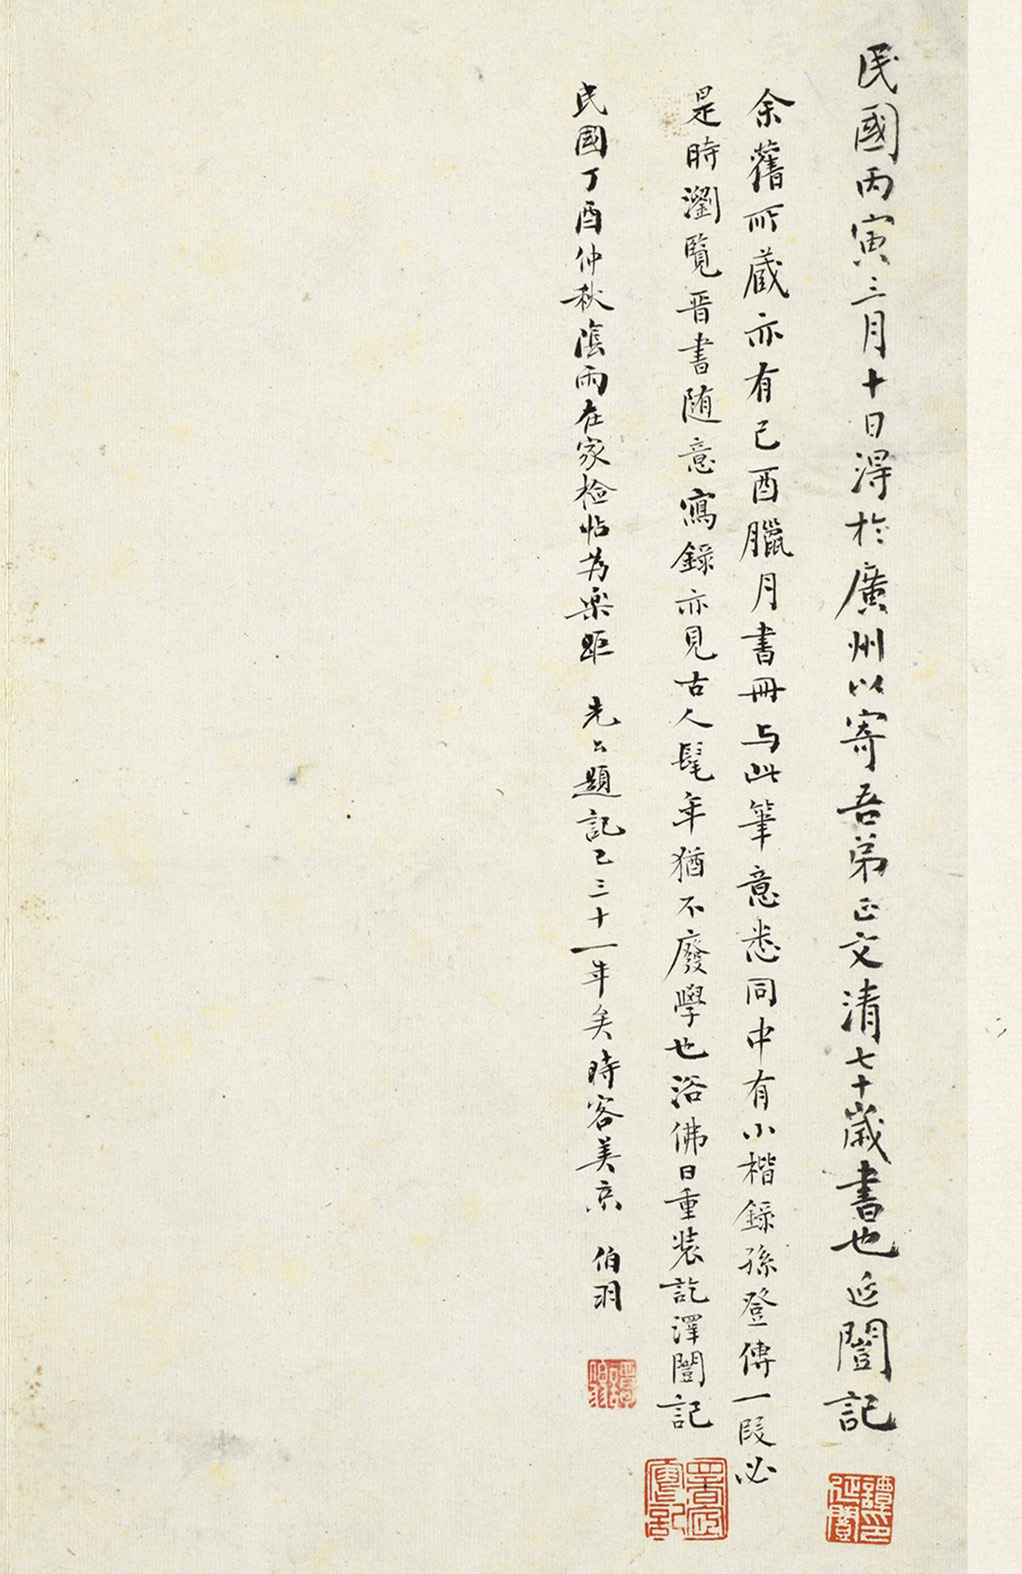 民國丙寅三月十日得於廣州以寄吾弟正文清七十歲書也延闓記
余舊所藏亦有己酉臘月書冊与此筆意悉同中有小楷錄孫登傳一段必
是時瀏覽晉書随意寫錄亦見古人髦年猶不廢學也浴佛日重装訖澤闓記
民國丁酉仲秋陰雨在家檢帖為樂距 先公題記已三十一年矣時客美京 伯羽
譚延闓印